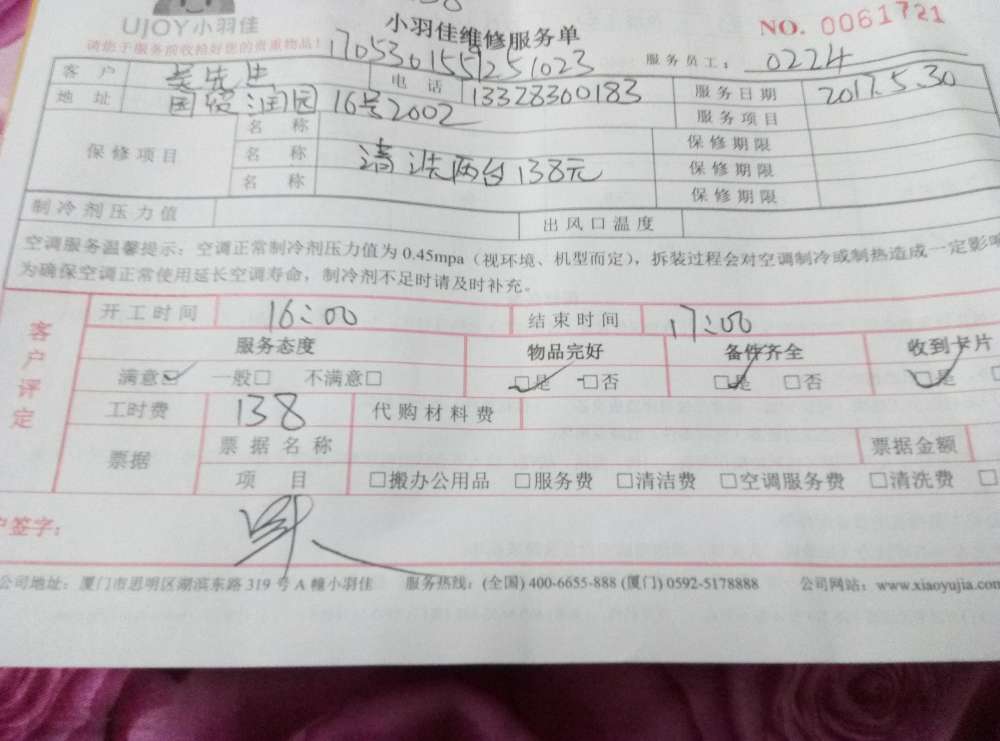 UJOY小羽佳
小羽佳维修服务单
NO. 0061721
请您于服务前收拾好您的贵重物品!
170530155251023
服务员工: 0224
客户 吴先生 电话 13328300183 服务日期 2017.5.30
地址 国贸润园16号2002 服务项目
保修项目
名称 保修期限
名称 清洗两台138元 保修期限
名称 保修期限
制冷剂压力值 出风口温度
空调服务温馨提示:空调正常制冷剂压力值为0.45mpa(视环境、机型而定),拆装过程会对空调制冷或制热造成一定影响
为确保空调正常使用延长空调寿命,制冷剂不足时请及时补充。
客户评定
开工时间 16:00 结束时间 17:00
服务态度 物品完好 备件齐全 收到卡片
满意☑ 一般□ 不满意□ ☑是 □否 ☑是 □否 ☑是 □
工时费 138 代购材料费
票据 票据名称 票据金额
项目 □搬办公用品 □服务费 □清洁费 □空调服务费 □清洗费 □
户签字:
公司地址:厦门市思明区湖滨东路319号A幢小羽佳 服务热线:(全国)400-6655-888(厦门)0592-5178888 公司网站:www.xiaoyujia.com